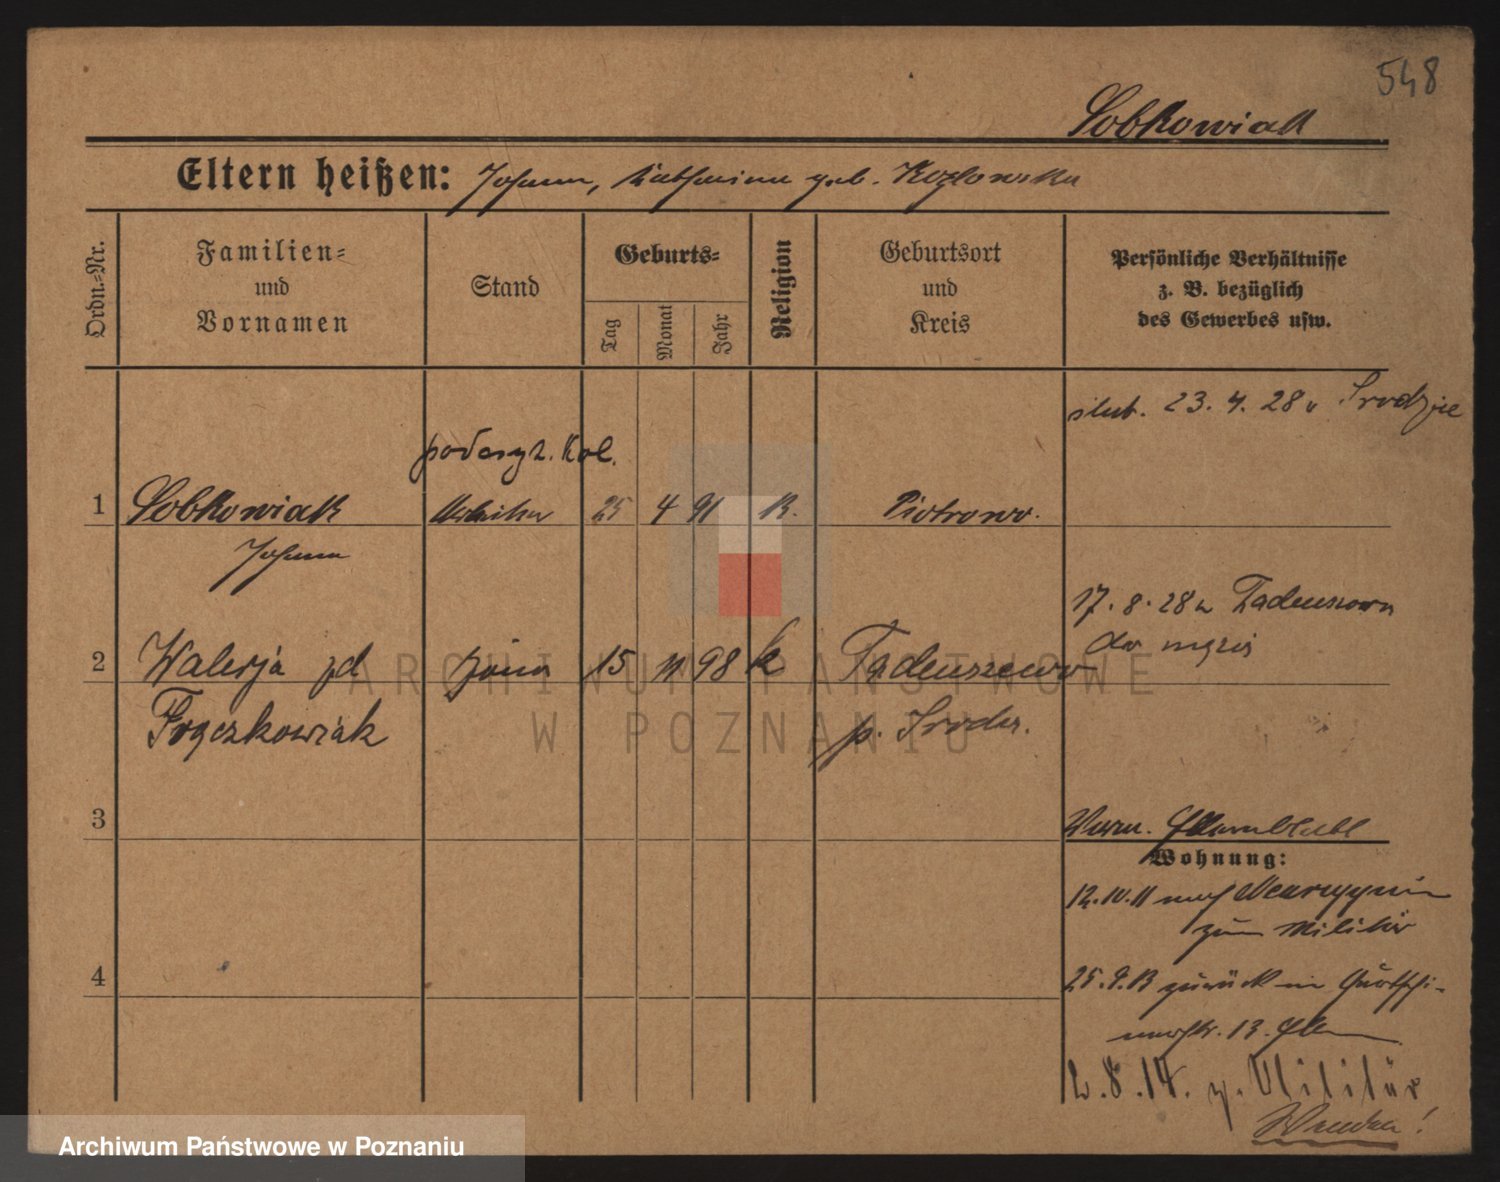 548
Sobkowiak
Eltern heißen: Johann, Katharina geb. Kozlowska
Ordn.-Nr.
Familien-
und
Vornamen
Stand
Geburts-
Tag
Monat
Jahr
Religion
Geburtsort
und
Kreis
Persönliche Verhältnisse
z. B. bezüglich
des Gewerbes usw.
ślub. 23. 4. 28 w Środzie
kol.
1 Sobkowiak 25 4 91 K. Piotrowo.
Johann
17. 8. 28 z Tadeuszewa
do męża
2 Walerja zd żona 15 11 98 k Tadeuszewo
Frączkowiak
p. Środa.
3
Wohnung:
12.10.11 nach Neuruppin
zum Militär
4
25.9.13 zurück in
13.
2.8.14. z. Militär
Wenden!
ARCHIWUM PAŃSTWOWE
W POZNANIU
Archiwum Państwowe w Poznaniu